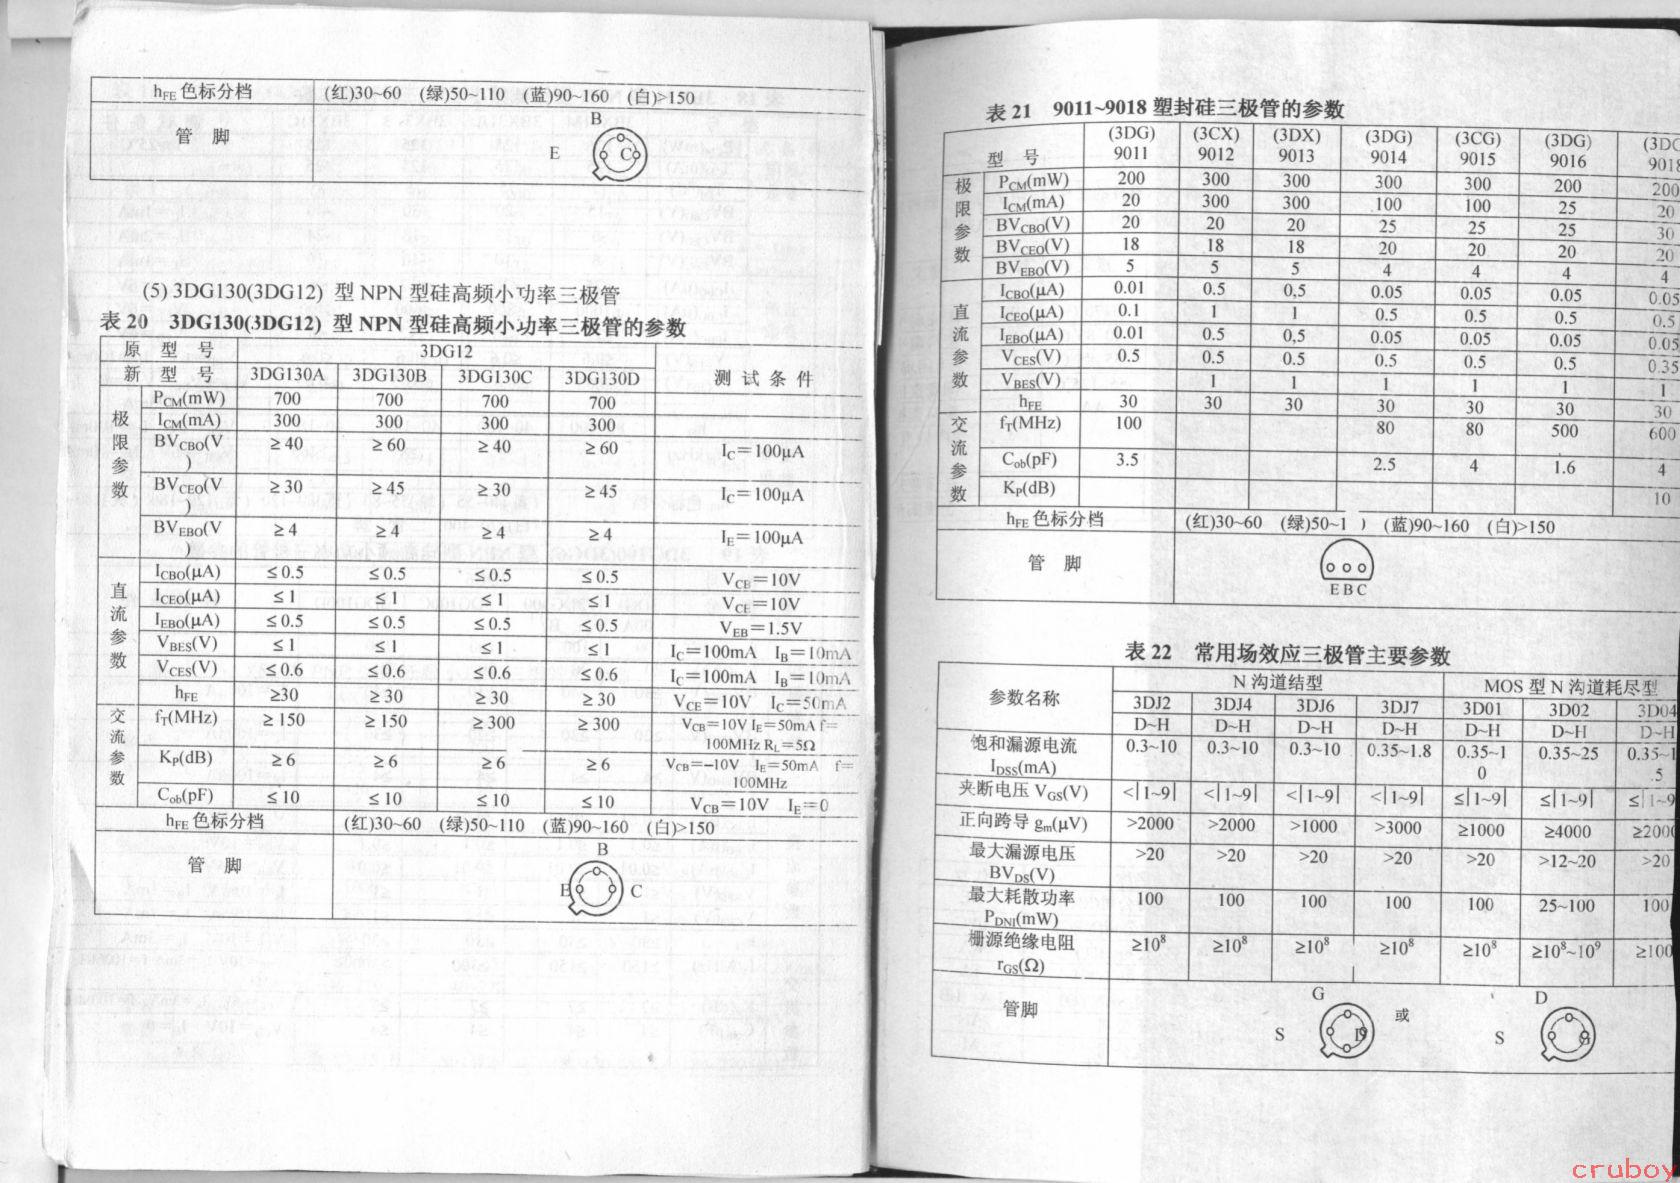 hFE 色标分档 (红)30~60 (绿)50~110 (蓝)90~160 (白)>150
管 脚 B E C
(5) 3DG130(3DG12) 型 NPN 型硅高频小功率三极管
表 20 3DG130(3DG12) 型 NPN 型硅高频小功率三极管的参数
原 型 号 3DG12 测 试 条 件
新 型 号 3DG130A 3DG130B 3DG130C 3DG130D
极限参数
PCM(mW) 700 700 700 700
ICM(mA) 300 300 300 300
BVCBO(V) ≥40 ≥60 ≥40 ≥60 IC=100μA
BVCEO(V) ≥30 ≥45 ≥30 ≥45 IC=100μA
BVEBO(V) ≥4 ≥4 ≥4 ≥4 IE=100μA
直流参数
ICBO(μA) ≤0.5 ≤0.5 ≤0.5 ≤0.5 VCB=10V
ICEO(μA) ≤1 ≤1 ≤1 ≤1 VCE=10V
IEBO(μA) ≤0.5 ≤0.5 ≤0.5 ≤0.5 VEB=1.5V
VBES(V) ≤1 ≤1 ≤1 ≤1 IC=100mA IB=10mA
VCES(V) ≤0.6 ≤0.6 ≤0.6 ≤0.6 IC=100mA IB=10mA
hFE ≥30 ≥30 ≥30 ≥30 VCE=10V IC=50mA
交流参数
fT(MHz) ≥150 ≥150 ≥300 ≥300 VCB=10V IE=50mA f=
100MHz RL=5Ω
KP(dB) ≥6 ≥6 ≥6 ≥6 VCB=–10V IE=50mA f=
100MHz
Cob(pF) ≤10 ≤10 ≤10 ≤10 VCB=10V IE=0
hFE 色标分档 (红)30~60 (绿)50~110 (蓝)90~160 (白)>150
管 脚 B E C
表 21 9011~9018 塑封硅三极管的参数
(3DG) (3CX) (3DX) (3DG) (3CG) (3DG) (3DG
型 号 9011 9012 9013 9014 9015 9016 9018
极限参数
PCM(mW) 200 300 300 300 300 200 200
ICM(mA) 20 300 300 100 100 25 20
BVCBO(V) 20 20 20 25 25 25 30
BVCEO(V) 18 18 18 20 20 20 20
BVEBO(V) 5 5 5 4 4 4 4
直流参数
ICBO(μA) 0.01 0.5 0,5 0.05 0.05 0.05 0.05
ICEO(μA) 0.1 1 1 0.5 0.5 0.5 0.5
IEBO(μA) 0.01 0.5 0,5 0.05 0.05 0.05 0.05
VCES(V) 0.5 0.5 0.5 0.5 0.5 0.5 0.35
VBES(V) 1 1 1 1 1 1
hFE 30 30 30 30 30 30 30
交流参数
fT(MHz) 100 80 80 500 600
Cob(pF) 3.5 2.5 4 1.6 4
KP(dB) 10
hFE 色标分档 (红)30~60 (绿)50~1 ) (蓝)90~160 (白)>150
管 脚
E B C
表 22 常用场效应三极管主要参数
参数名称 N 沟道结型 MOS 型 N 沟道耗尽型
3DJ2 3DJ4 3DJ6 3DJ7 3D01 3D02 3D04
D~H D~H D~H D~H D~H D~H D~H
饱和漏源电流 0.3~10 0.3~10 0.3~10 0.35~1.8 0.35~1 0.35~25 0.35~1
IDSS(mA) 0 .5
夹断电压 VGS(V) <|1~9| <|1~9| <|1~9| <|1~9| ≤|1~9| ≤|1~9| ≤|1~9
正向跨导 gm(μV) >2000 >2000 >1000 >3000 ≥1000 ≥4000 ≥2000
最大漏源电压 >20 >20 >20 >20 >20 >12~20 >20
BVDS(V)
最大耗散功率 100 100 100 100 100 25~100 100
PDNI(mW)
栅源绝缘电阻 ≥10⁸ ≥10⁸ ≥10⁸ ≥10⁸ ≥10⁸ ≥10⁸~10⁹ ≥100
rGS(Ω)
管脚 G S D 或 D S G
cruboy